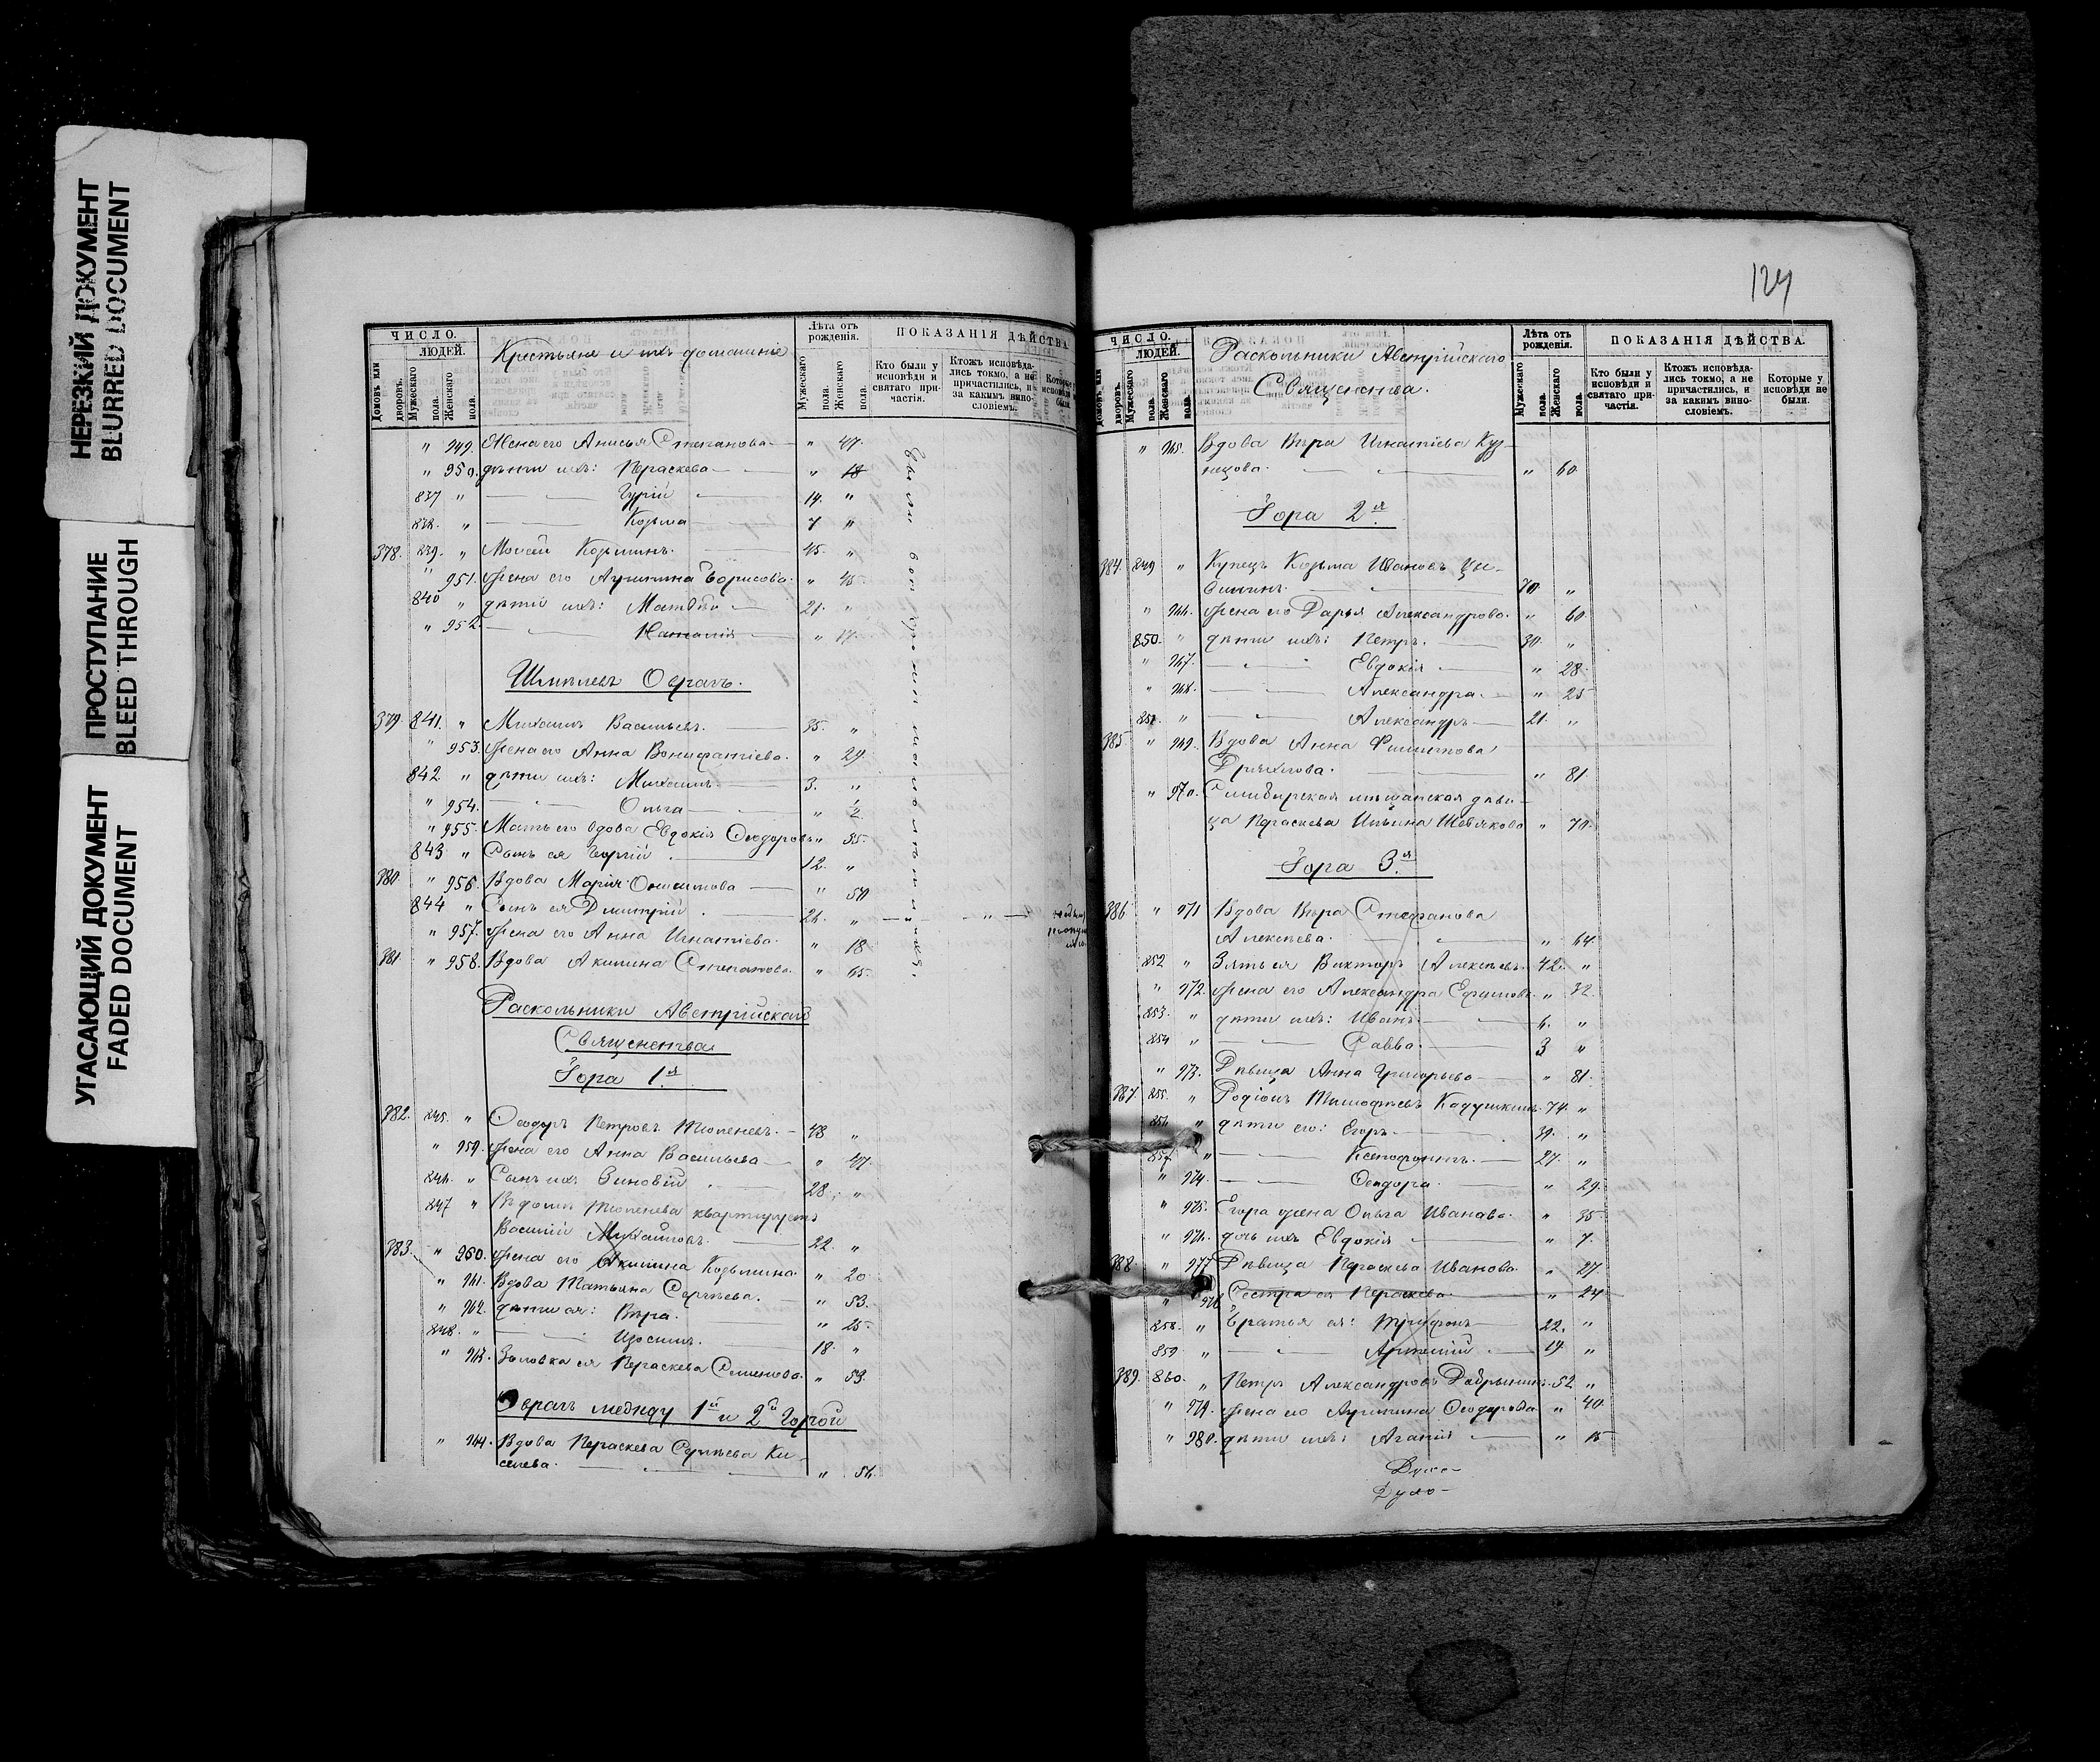 НЕРЕЗКИЙ ДОКУМЕНТ
BLURRED DOCUMENT
ПРОСТУПАНИЕ
BLEED THROUGH
УГАСАЮЩИЙ ДОКУМЕНТ
FADED DOCUMENT
ЧИСЛО.
ЛЮДЕЙ.
домовъ или дворовъ.
Мужескаго пола.
Женскаго пола.
Крестьяне и ихъ домашніе
Лѣта отъ рожденія.
Мужескаго пола.
Женскаго пола.
ПОКАЗАНІЯ ДѢЙСТВА
Кто были у исповѣди и святаго причастія.
Ктожъ исповѣдались токмо, а не причастились, и за какимъ винословіемъ.
" 949. Жена его Анисья Степанова " 47.
" 950. дѣти ихъ: Параскева " 18
837 " Гурій 14. "
838. " Козьма 7 "
378. 839. " Моисей Козьминъ. 45. "
" 951. Жена его Агрипина Борисова. " 45.
840 " дѣти ихъ: Матвѣй 21. "
" 952. Наталія " 17.
Шмелевъ Оврагъ.
379. 841. " Михаилъ Васильевъ. 35. "
" 953. Жена его Анна Вонифатіева. " 29.
842 " дѣти ихъ: Михаилъ 3. "
" 954. Ольга " ½
" 955. Мать его вдова Евдокія Ѳеодорова " 55.
843 " Сынъ ея Георгій 12. "
380. " 956. Вдова Марія " 50
844 " Сынъ ея Дмитрій 21. "
" 957. Жена его Анна Игнатіева. " 18
381 " 958. Вдова Акилина Степанова. " 65.
Раскольники Австрійскаго
Священства
Гора 1я
382. 845. " Ѳеодоръ Петровъ Тюленевъ. 48 "
" 959. Жена его Анна Васильева " 47.
846. " Сынъ ихъ Зиновій 28. "
847 " Въ домѣ Тюленева квартируетъ
Василій Михаиловъ. 22. "
383. " 960. Жена его Акилина Козьмина " 20
" 961. Вдова Татьяна Сергѣева. " 53.
" 962. дѣти ея: Вѣра. " 25.
848. " Изосимъ. 18. "
" 963. Золовка ея Параскева Семенова. " 53.
Оврагъ между 1й и 2й Горой
" 964. Вдова Параскева Сергѣева Ки-
селева. " 56.
124
ЧИСЛО.
ЛЮДЕЙ.
домовъ или дворовъ.
Мужескаго пола.
Женскаго пола.
Раскольники Австрійскаго
Священства.
Лѣта отъ рожденія.
Мужескаго пола.
Женскаго пола.
ПОКАЗАНІЯ ДѢЙСТВА.
Кто были у исповѣди и святаго причастія.
Ктожъ исповѣдались токмо, а не причастились, и за какимъ винословіемъ.
Которые у исповѣди не были.
" 965. Вдова Вѣра Игнатіева Куз-
нецова. " 60.
Гора 2я
384. 849 " Купецъ Козьма Ивановъ
70 "
" 966. Жена его Дарья Александрова. " 60
850. " дѣти ихъ: Петръ. 30. "
" 967. Евдокія " 28
" 968. Александра. " 25
851. " Александръ 21. "
385 " 969. Вдова Анна Филиппова
Дряхлова. " 81
" 970. Симбирская мѣщанская дѣви-
ца Параскева Ильина Шевякова " 70.
Гора 3я
386 " 971 Вдова Вѣра Стефанова
Алексѣева. " 64.
852 " Зять ея Викторъ Алексѣевъ. 42. "
" 972. Жена его Александра Ефимова. " 32.
853. " дѣти ихъ: Иванъ 6. "
854 " Савва. 3 "
" 973. Дѣвица Анна Григорьева " 81.
387. 855. " Родіонъ Тимофеевъ Кадушкинъ. 74. "
856 " дѣти его: Егоръ 39. "
857. " Ксенофонтъ. 27. "
" 974. Ѳеодора. " 29.
" 975. Егора жена Ольга Иванова. " 35
" 976. дочь ихъ Евдокія " 7.
388. " 977 Дѣвица Параскева Иванова. " 27
" 978 Сестра ея Параскева " 24
858. " Братья ея: Трифонъ 22. "
859. " Артемій 19. "
389. 860. " Петръ Александровъ Добрынинъ. 52 "
" 979. Жена его Агрипина Ѳеодорова " 40.
" 980. дѣти ихъ: Агапія " 15